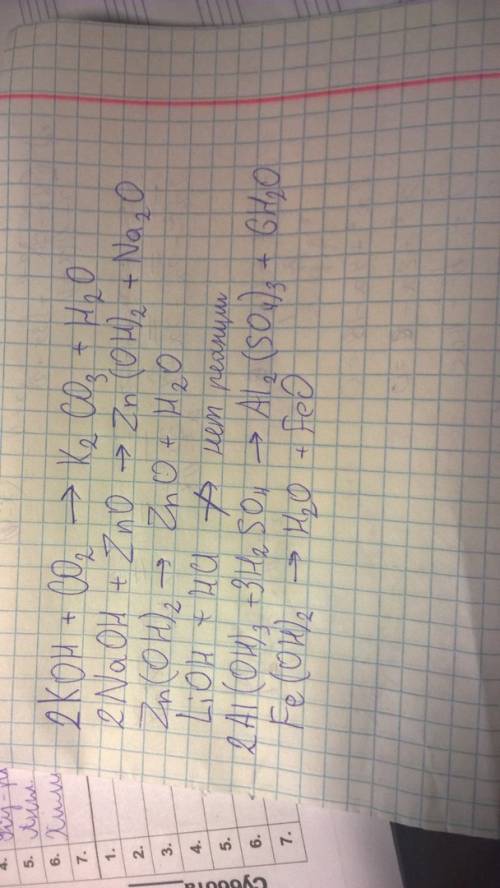 2KOH + CO₂ → K₂CO₃ + H₂O
2NaOH + ZnO → Zn(OH)₂ + Na₂O
Zn(OH)₂ → ZnO + H₂O
LiOH + HCl ↛ нет реакции
2Al(OH)₃ + 3H₂SO₄ → Al₂(SO₄)₃ + 6H₂O
Fe(OH)₂ → H₂O + FeO
4.
5.
6.
7.
1.
2.
3.
4.
5.
6.
7.
Суббота